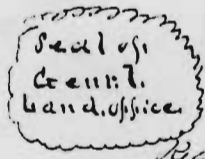 Seal of
Genrl.
Land.office.